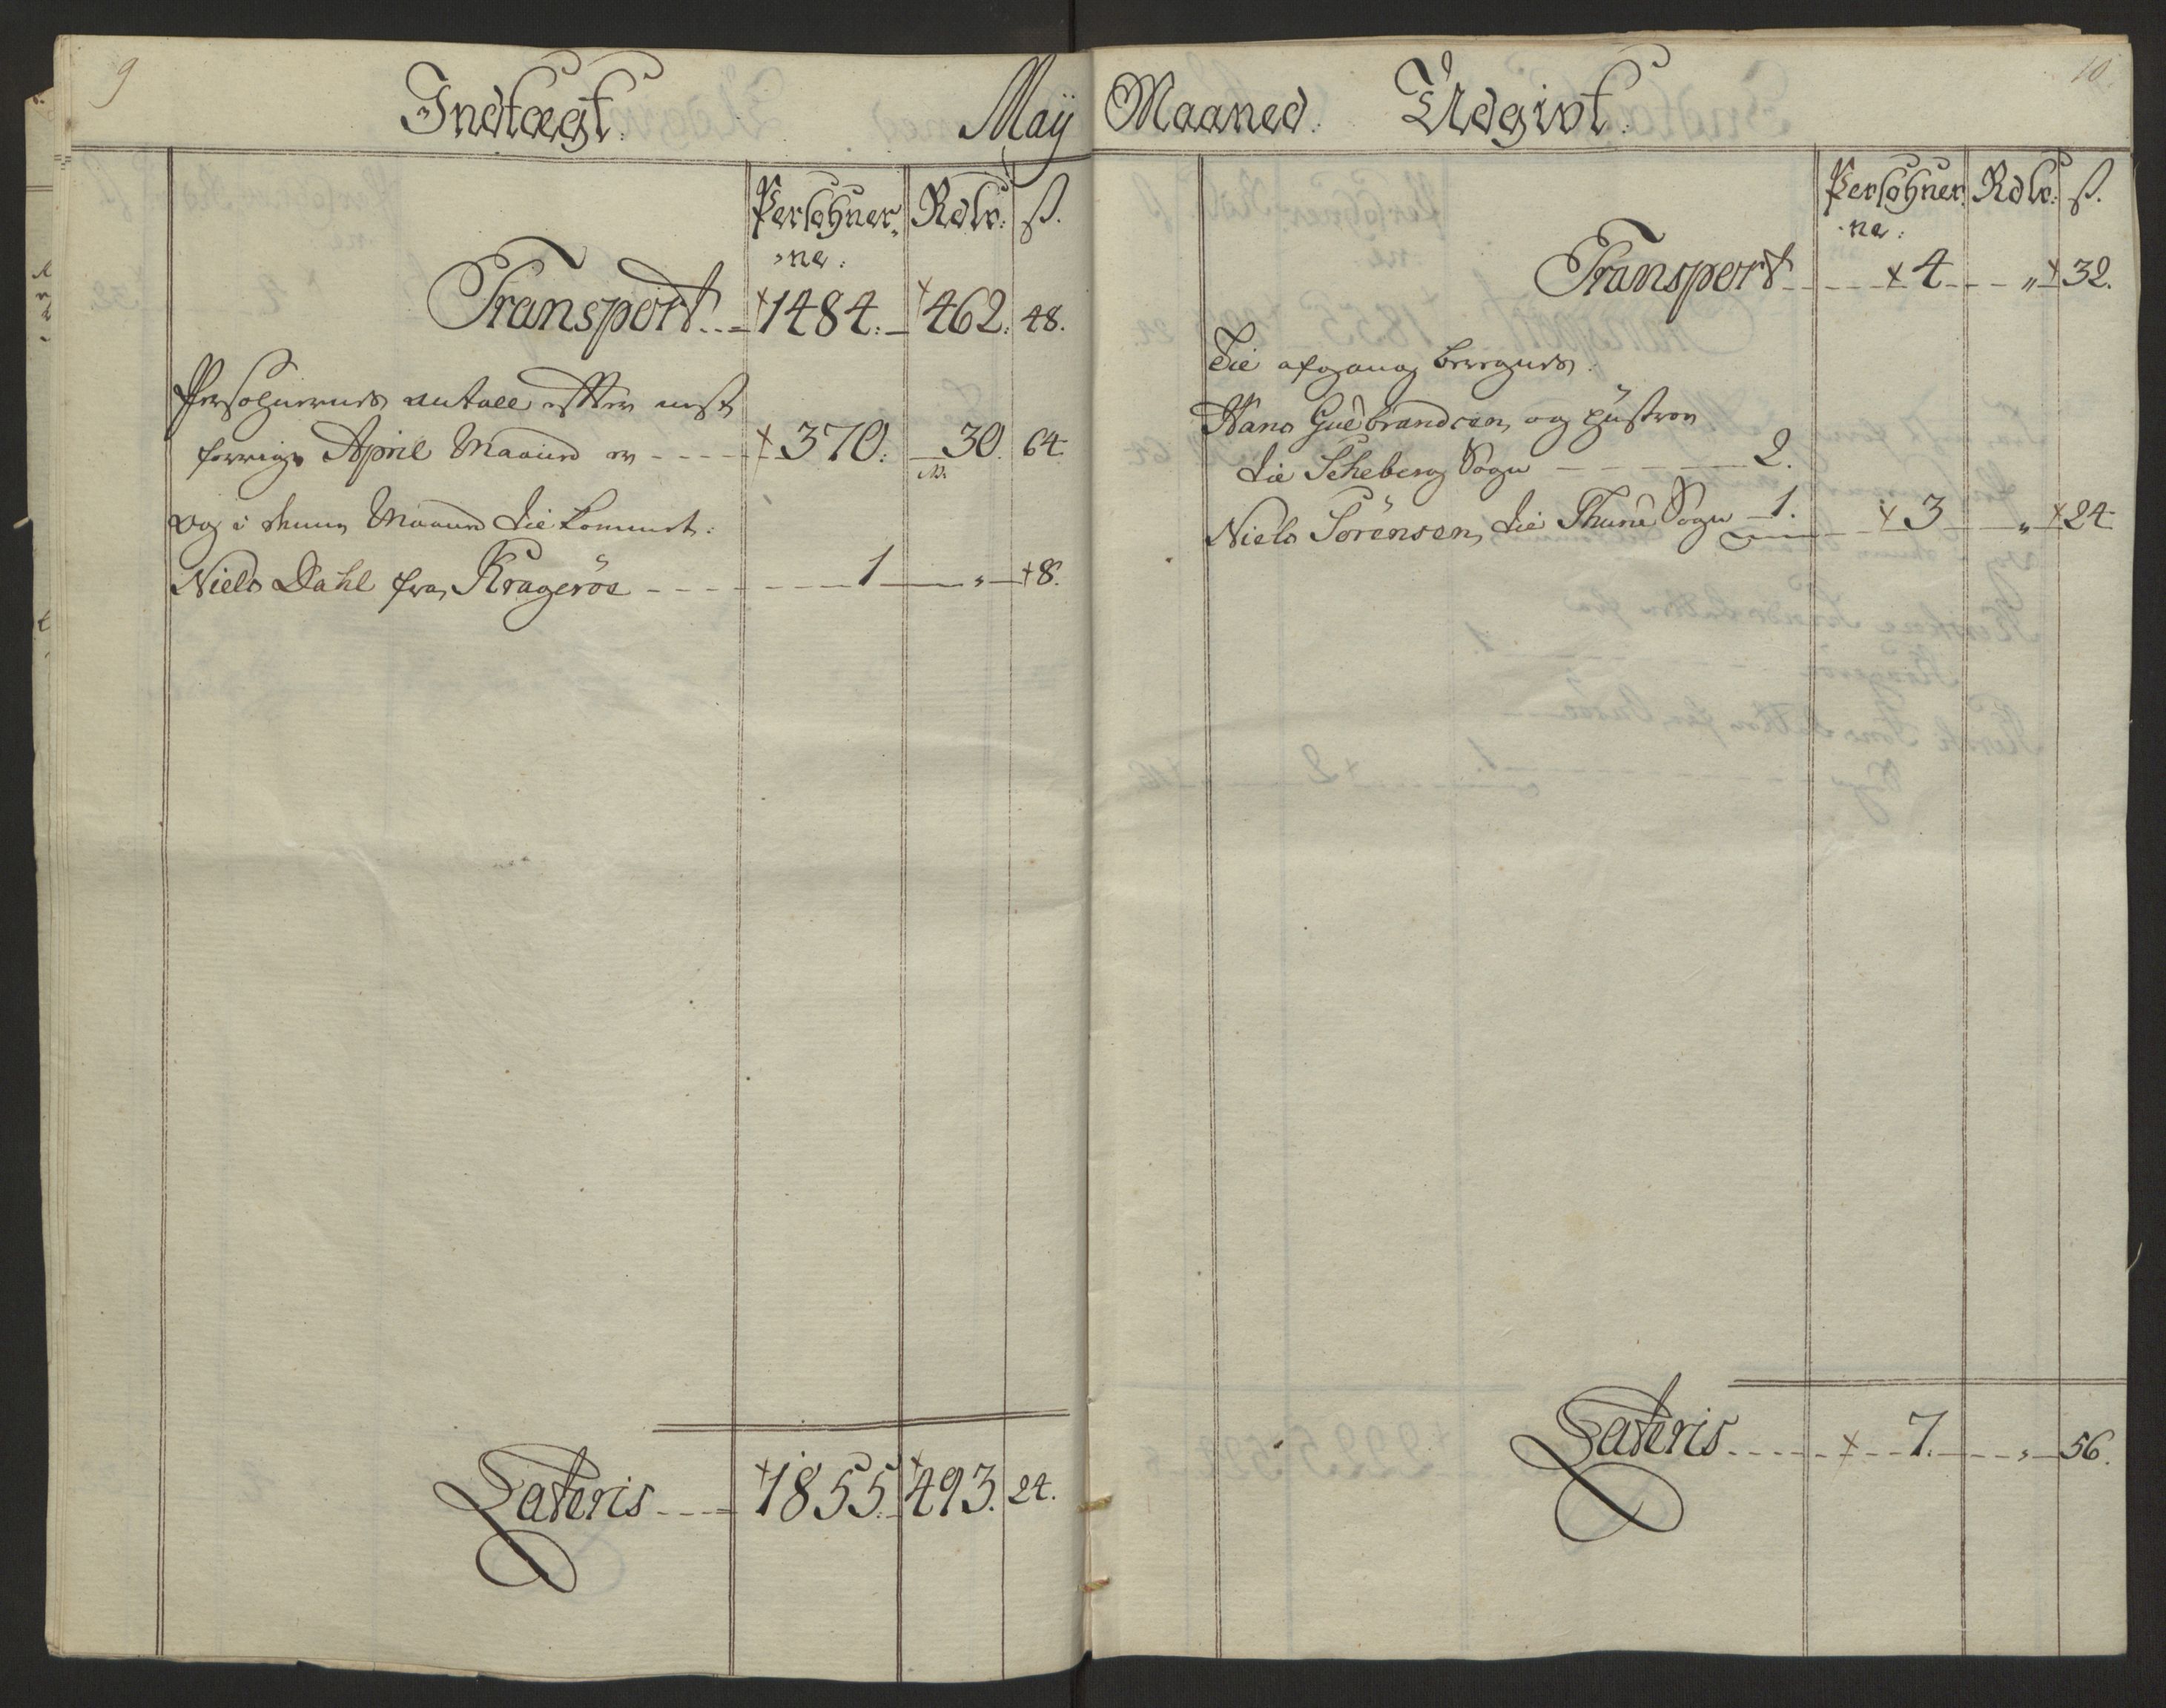 9
Indtægt. Maÿ
Persohner,, Rdlr. ß.
,,ne:
Transport... 1484. 462. 48.
Persohnernes antall efter nest
forrige April Maaned er - - - - 370. 30. 64.
og i denne Maaned tilkommet:
Niels Dahl fra Krageröe - - - - 1 " 8.
Lateris - - - 1855. 493. 24.
10.
Maaned. Udgivt.
Persohner, Rdlr. ß.
,,ne:
Transport - - - 4 - - " 32.
Til afgang beregnes.
Hans Gudbrandsen og Hustroe
til Scheberg Sogn - - - - 2.
Niels Sörensen, til Thune Sogn 1. 3 " 24.
Lateris - - - - - 7. - - " 56.